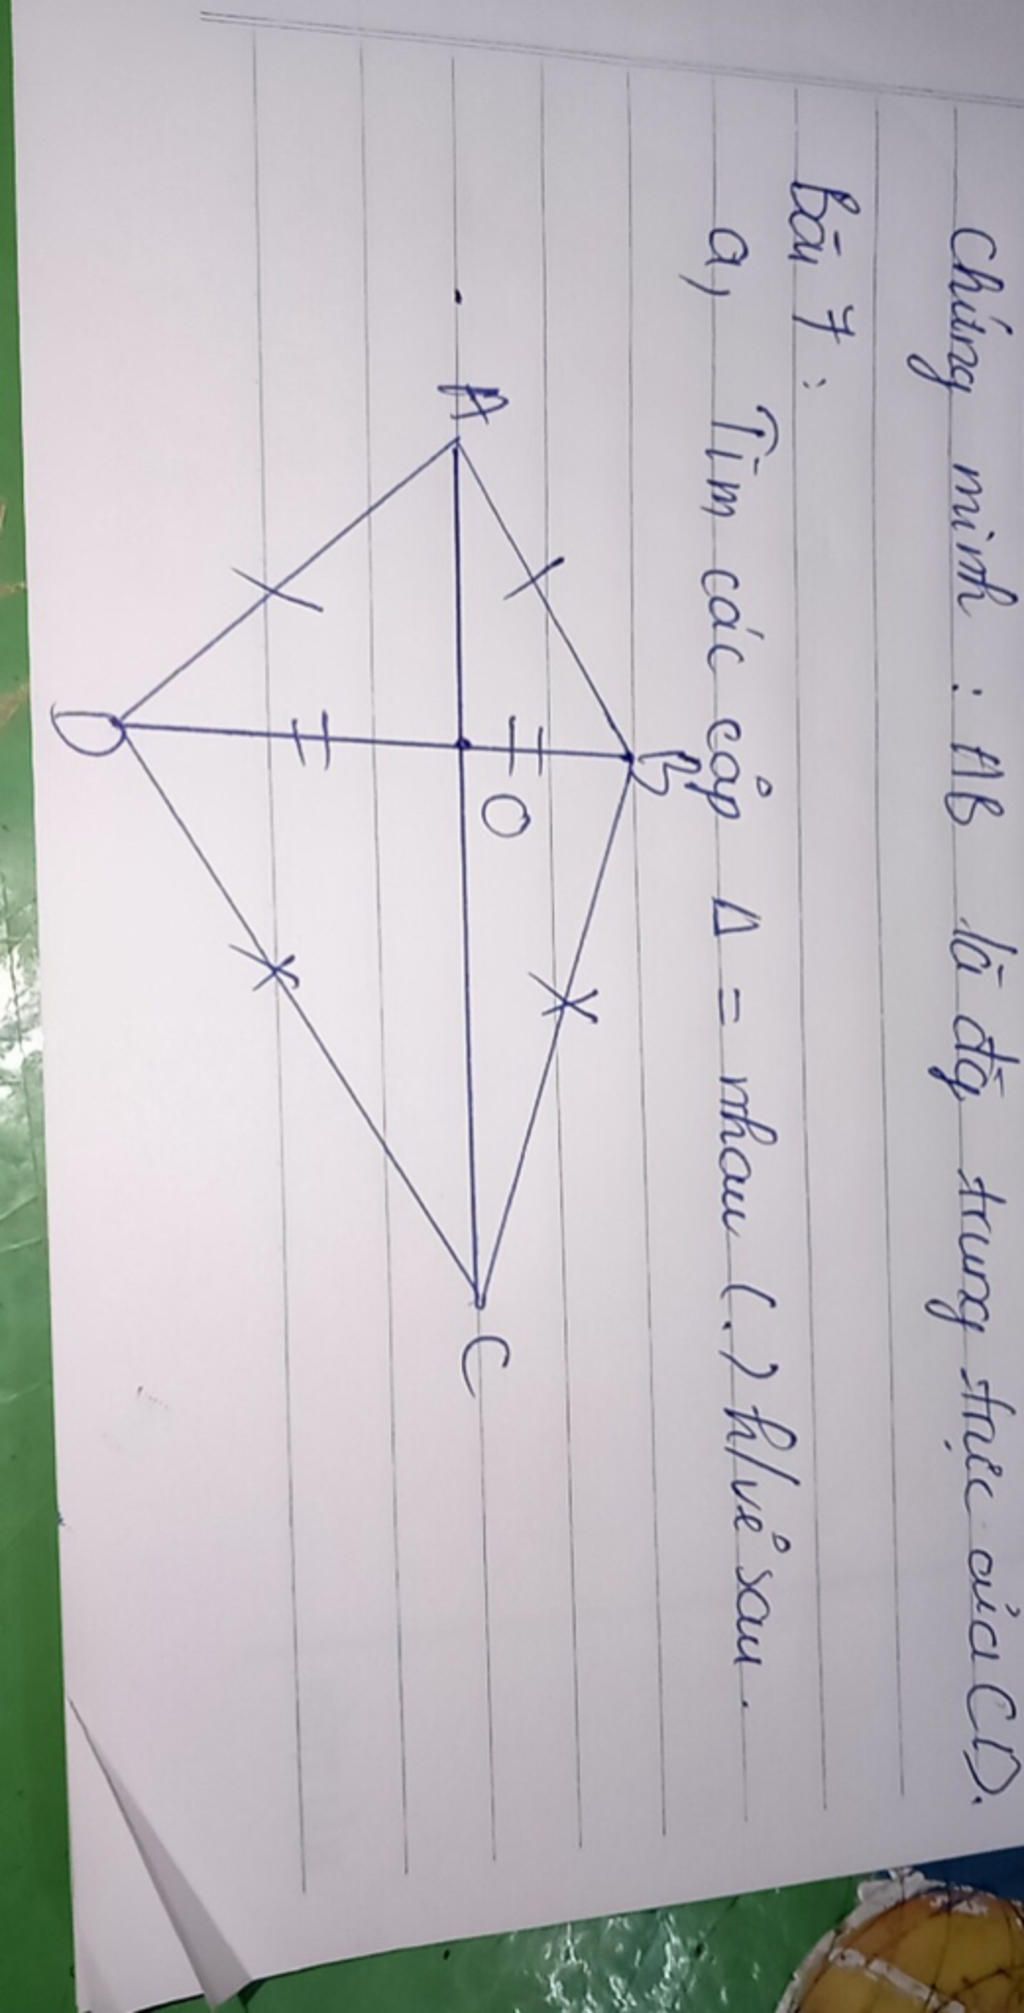 Chứng minh : AB là đg trung trực của CD.
Bài 7 :
a, Tìm các cặp Δ = nhau (.) h/vẽ sau.
B
A
O
C
D